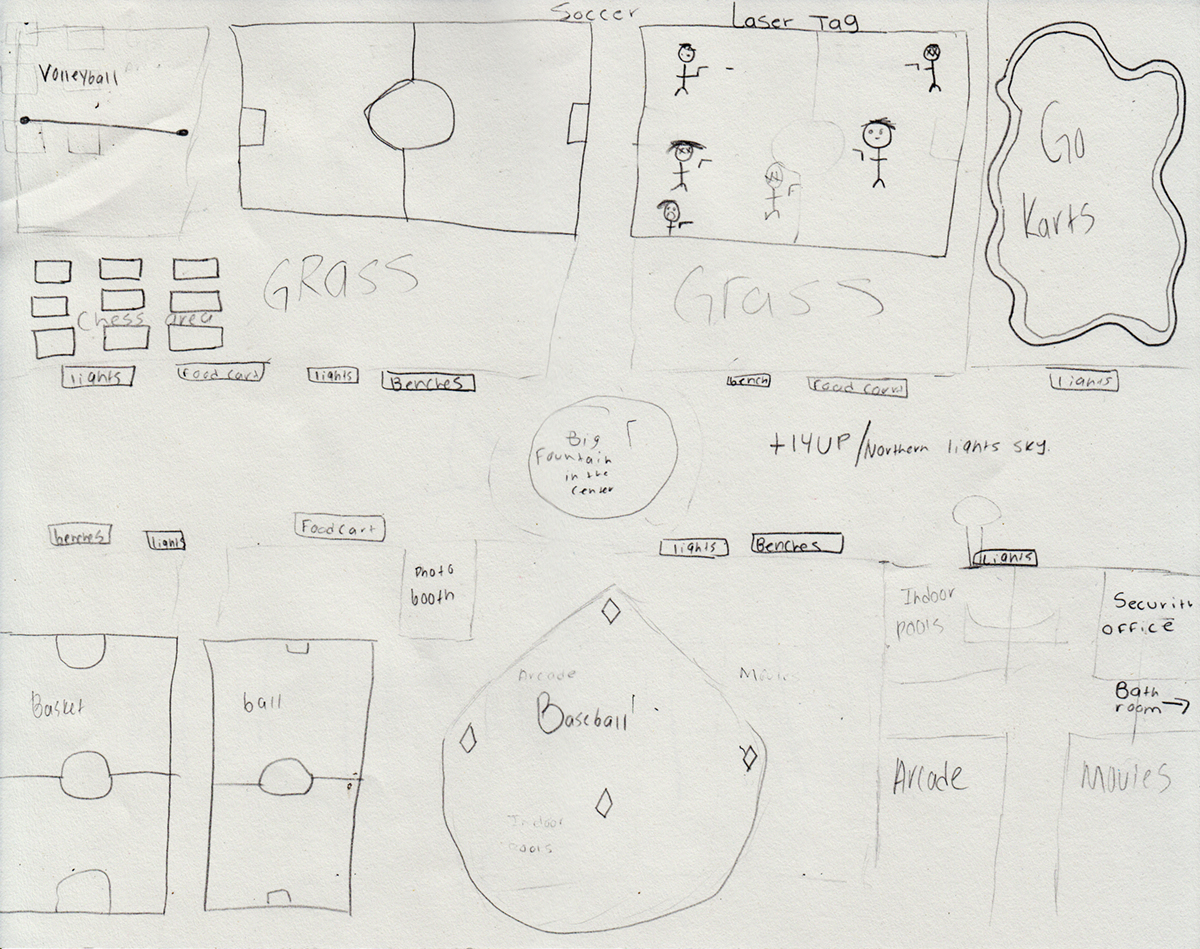 Soccer
Laser Tag
Volleyball
Go
Karts
GRASS
Grass
Chess area
lights
Food cart
lights
Benches
bench
Food Cart
Lights
Big
Fountain
in the
Center
+14UP/Northern lights sky.
benches
lights
Food cart
lights
Benches
Lights
Photo
booth
Indoor
pools
Security
OFFICE
Bath
room
Arcade
Movies
Basket
ball
Baseball
Indoor
Pools
Arcade
Movies